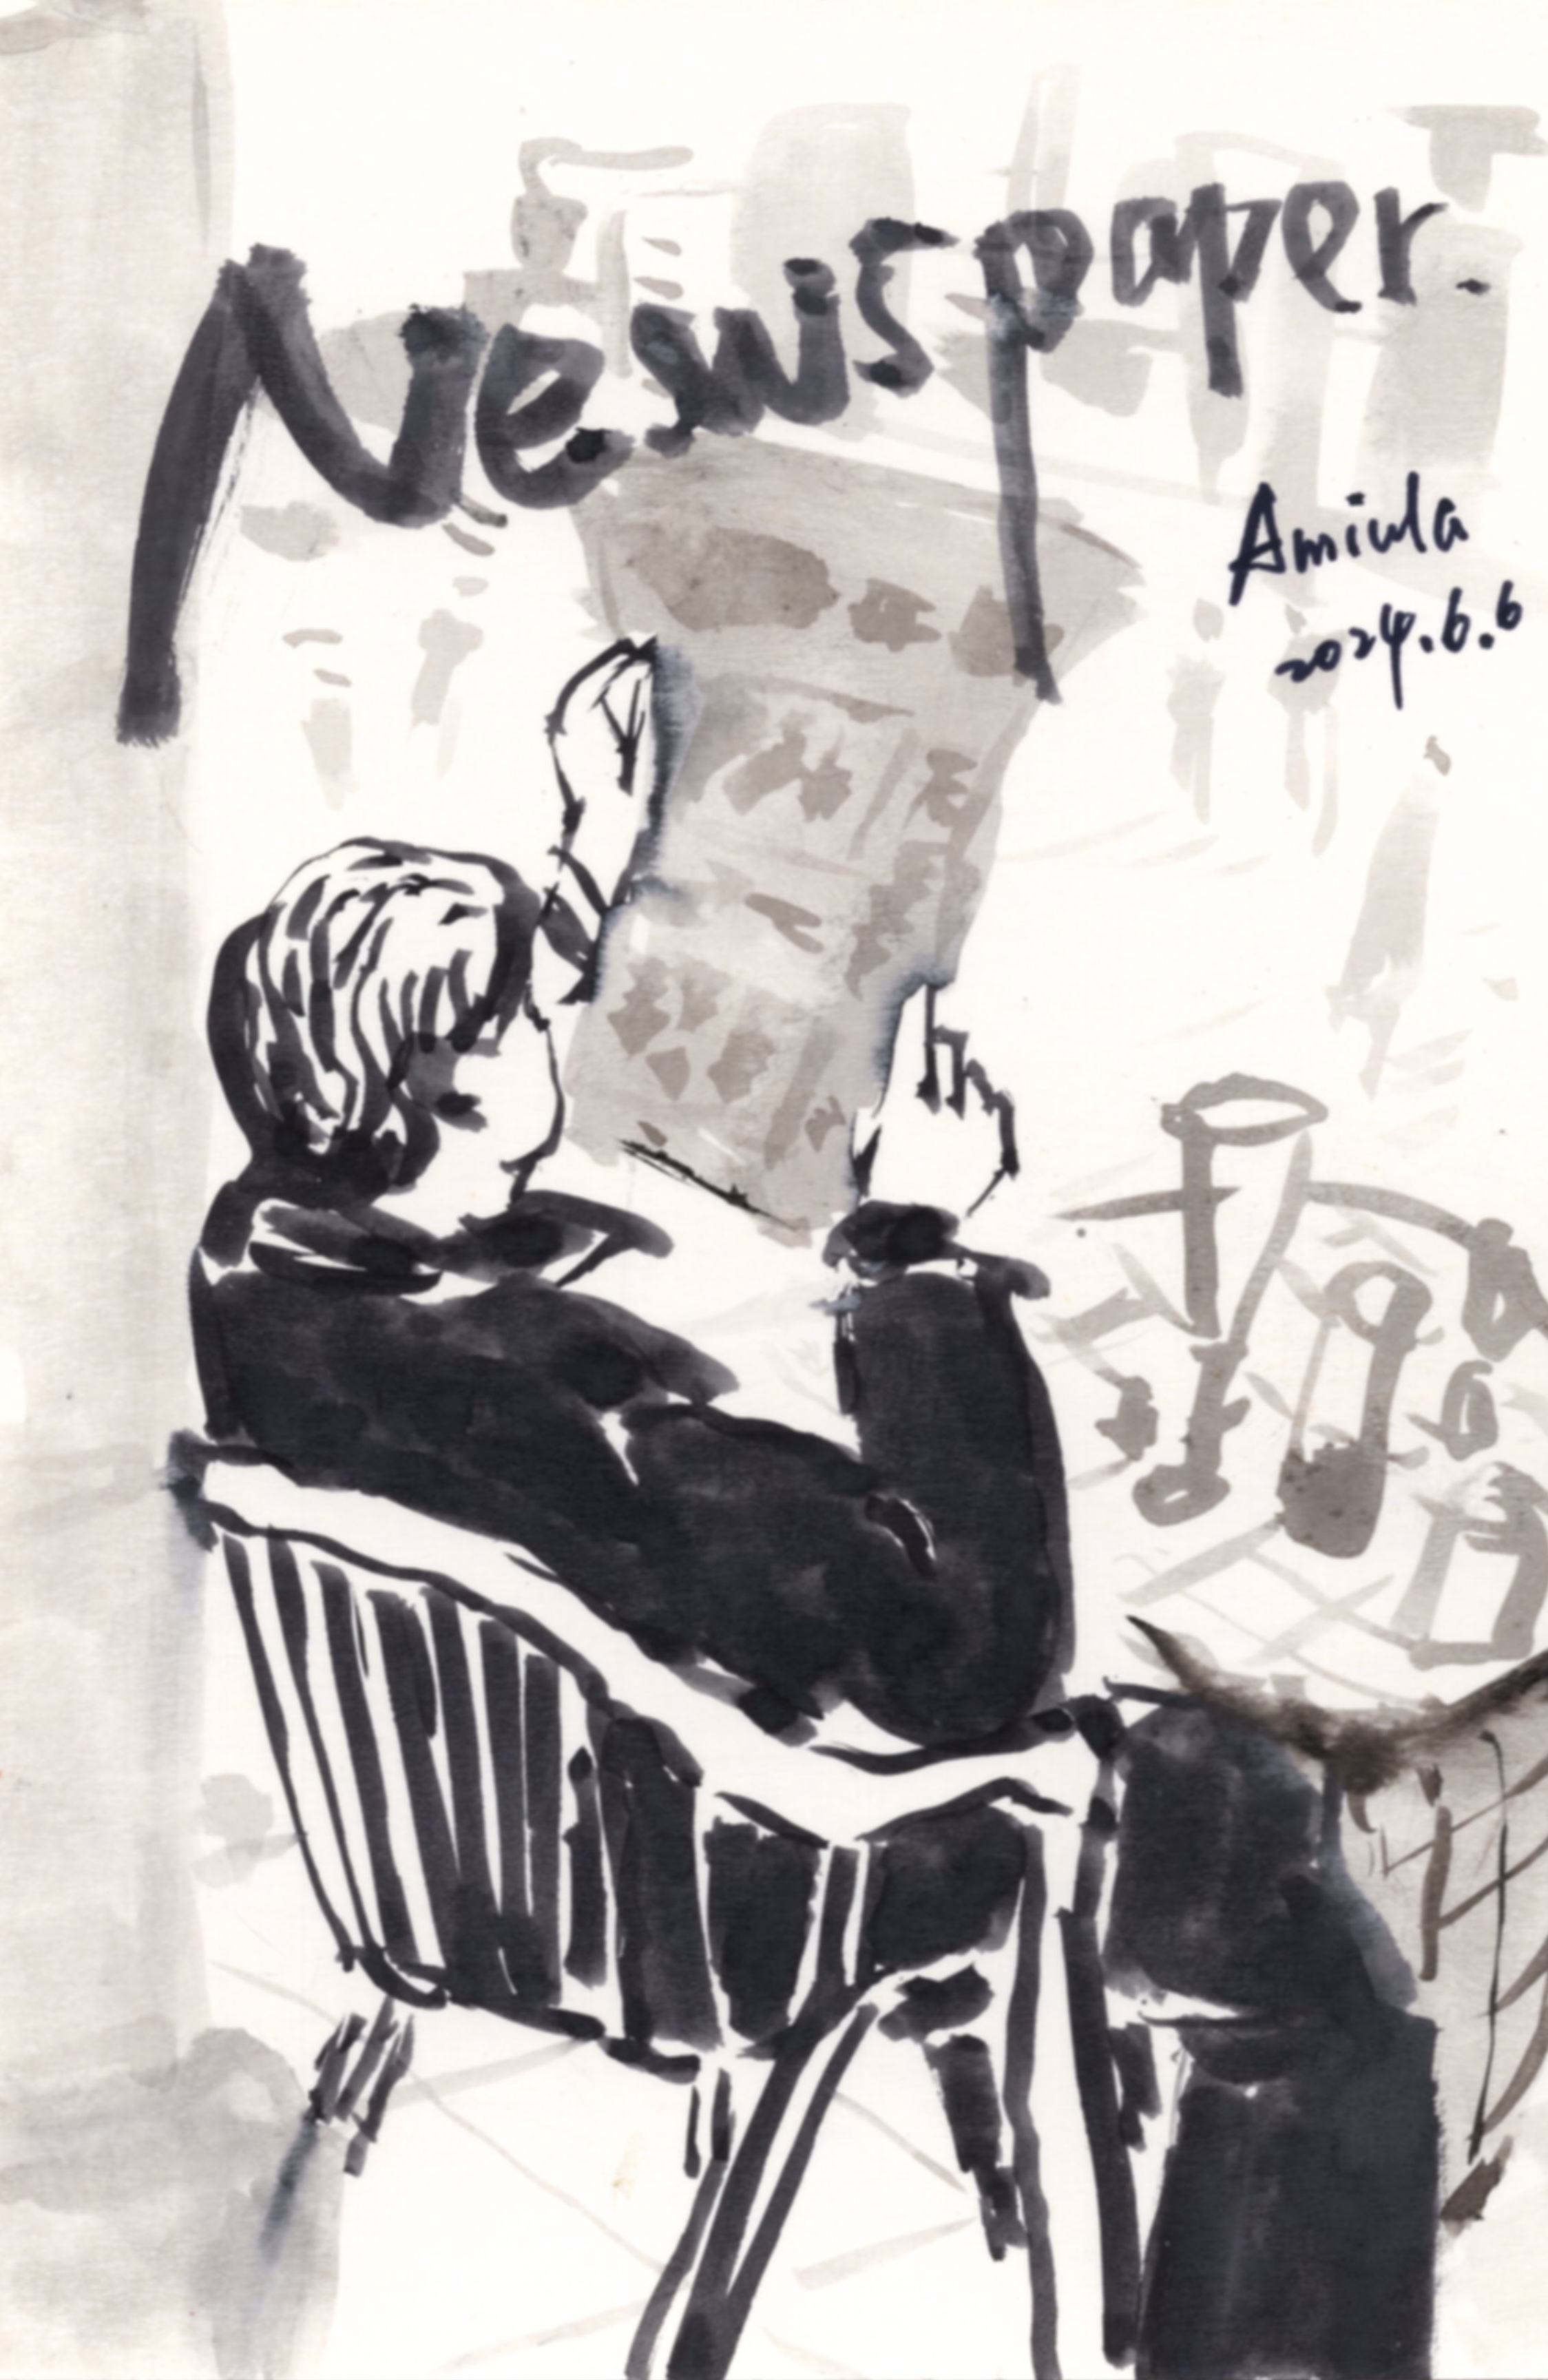 Newspaper.
Amiula
2024.6.6